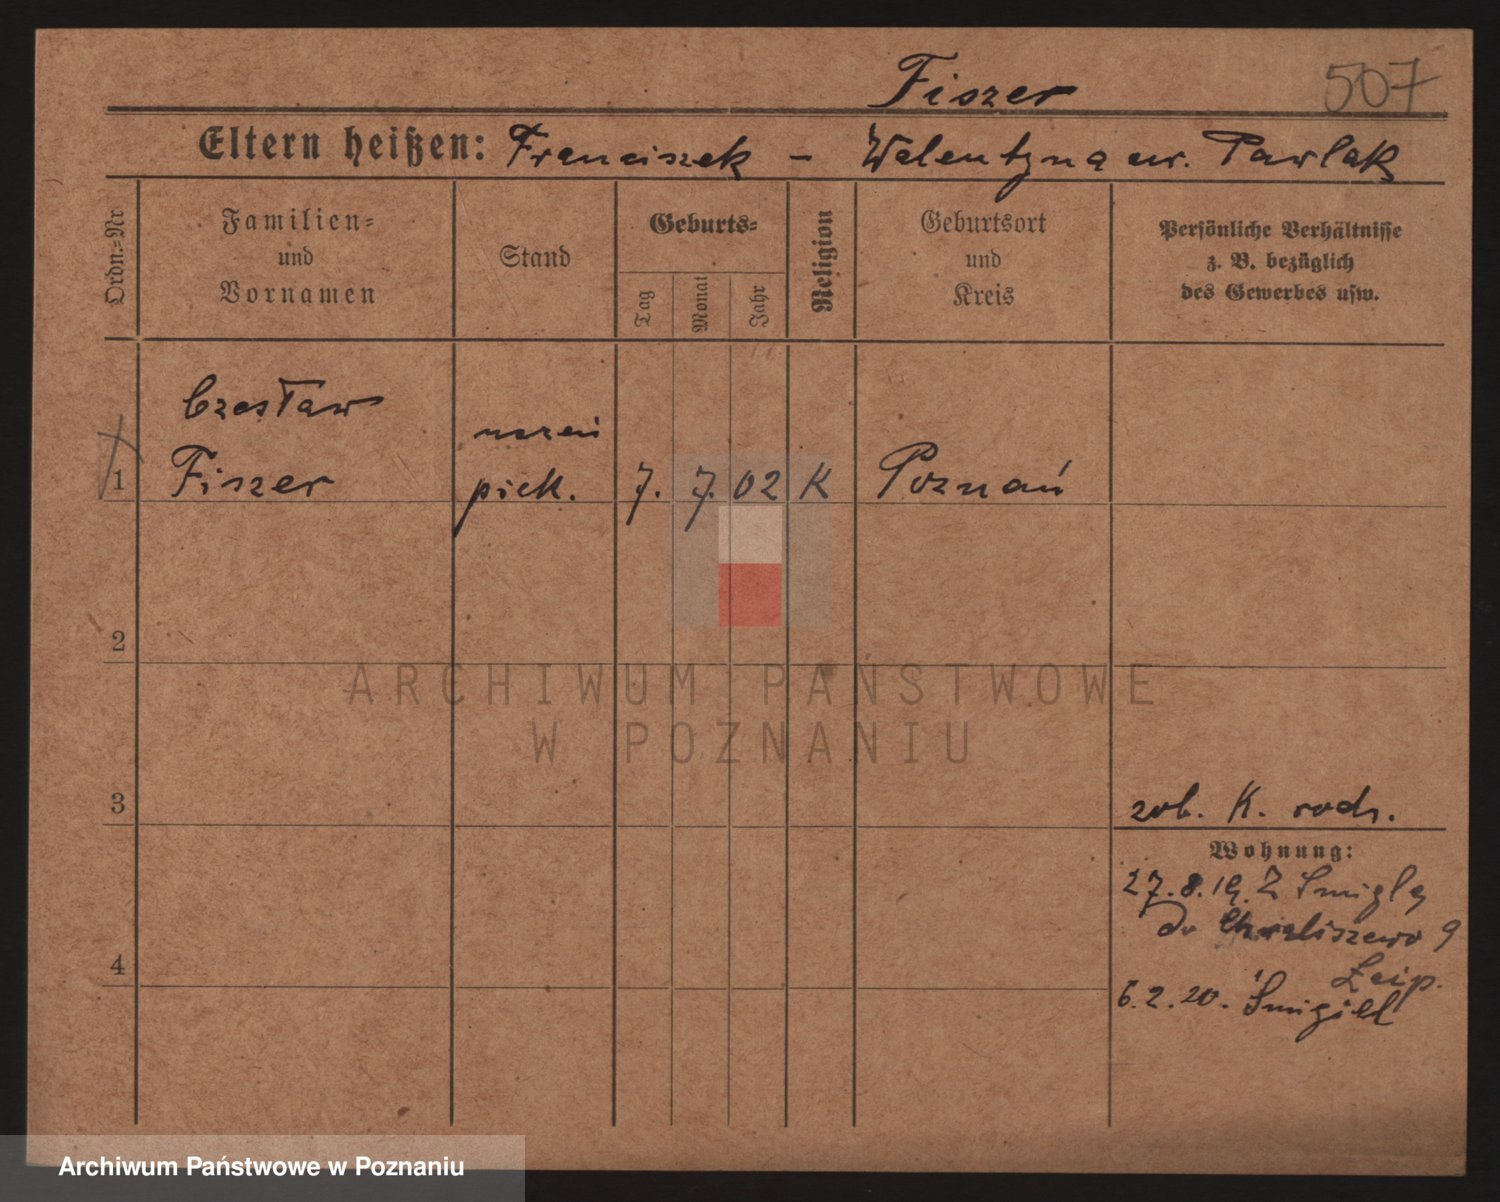 Fiszer 507
Eltern heißen: Franciszek – Walentyna ur. Pawlak
Ordn.=Nr
Familien=
und
Vornamen
Stand
Geburts=
Tag
Monat
Jahr
Religion
Geburtsort
und
Kreis
Persönliche Verhältnisse
z. B. bezüglich
des Gewerbes usw.
1
Czesław
Fiszer
uczeń
piek.
7. 7. 02 K Poznań
2
3
4
zob. K. rodz.
Wohnung:
27.8.19. Z Śmigla
do Chwaliszewo 9
6.2.20. Śmigiel
ARCHIWUM PAŃSTWOWE
W POZNANIU
Archiwum Państwowe w Poznaniu